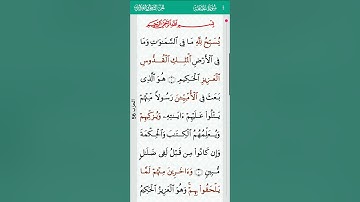 بِسْمِ ٱللَّهِ ٱلرَّحْمَٰنِ ٱلرَّحِيمِ
يُسَبِّحُ لِلَّهِ مَا فِى ٱلسَّمَٰوَٰتِ وَمَا
فِى ٱلْأَرْضِ ٱلْمَلِكِ ٱلْقُدُّوسِ
ٱلْعَزِيزِ ٱلْحَكِيمِ ۝ هُوَ ٱلَّذِى
بَعَثَ فِى ٱلْأُمِّيِّـۧنَ رَسُولًا مِّنْهُمْ
يَتْلُوا۟ عَلَيْهِمْ ءَايَٰتِهِۦ وَيُزَكِّيهِمْ
وَيُعَلِّمُهُمُ ٱلْكِتَٰبَ وَٱلْحِكْمَةَ
وَإِن كَانُوا۟ مِن قَبْلُ لَفِى ضَلَٰلٍ
مُّبِينٍ ۝ وَءَاخَرِينَ مِنْهُمْ لَمَّا
يَلْحَقُوا۟ بِهِمْ ۚ وَهُوَ ٱلْعَزِيزُ ٱلْحَكِيمُ